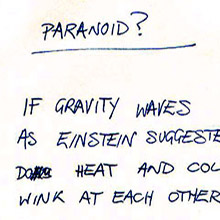 PARANOID?
IF GRAVITY WAVES
AS EINSTEIN SUGGESTE
HEAT AND COO
WINK AT EACH OTHER